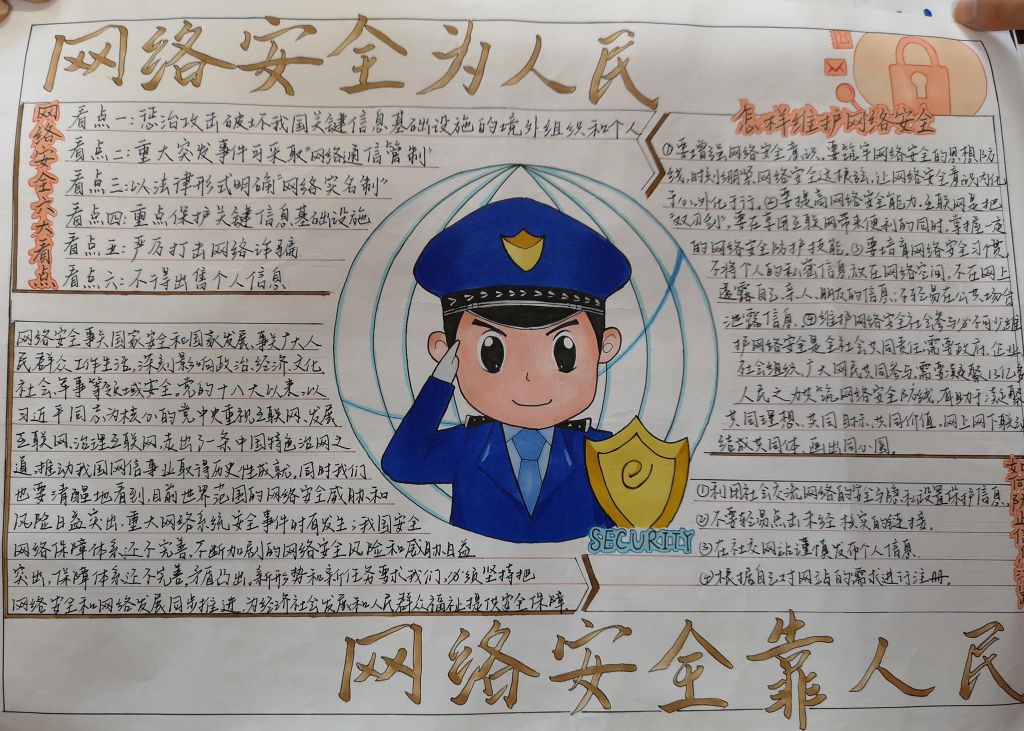 网络安全为人民
网络安全六大看点
看点一:惩治攻击破坏我国关键信息基础设施的境外组织和个人
看点二:重大突发事件可采取"网络通信管制"
看点三:以法律形式明确"网络实名制"
看点四:重点保护关键信息基础设施
看点五:严厉打击网络诈骗
看点六:不得出售个人信息
网络安全事关国家安全和国家发展,事关广大人
民群众工作生活,深刻影响政治、经济、文化、
社会、军事等领域安全。党的十八大以来,以
习近平同志为核心的党中央重视互联网、发展
互联网、治理互联网,走出了一条中国特色治网之
道,推动我国网信事业取得历史性成就。同时我们
也要清醒地看到,目前世界范围的网络安全威胁和
风险日益突出,重大网络系统安全事件时有发生;我国安全
网络保障体系还不完善,不断加剧的网络安全风险和威胁日益
突出,保障体系还不完善,矛盾凸出,新形势和新任务要求我们,必须坚持把
网络安全和网络发展同步推进,为经济社会发展和人民群众福祉提供安全保障.
怎样维护网络安全
①要增强网络安全意识。要筑牢网络安全的思想防
线,时刻绷紧网络安全这根弦,让网络安全意识内化
于心、外化于行。②要提高网络安全能力。互联网是把
"双刃剑",要在享用互联网带来便利的同时,掌握一定
的网络安全防护技能。③要培育网络安全习惯
不将个人的私密信息放在网络空间,不在网上
透露自己、亲人、朋友的信息,不轻易在公共场合
泄露信息。④维护网络安全社会参与必不可少,维
护网络安全是全社会共同责任,需要政府、企业
社会组织、广大网民共同参与,需要凝聚13亿
人民之力共筑网络安全防线,有助于凝聚
共同理想、共同目标、共同价值,网上网下联动
结成共同体,画出同心圆.
①利用社会交流网络的安全与隐私设置保护信息.
②不要轻易点击未经核实的链接.
③在社交网站谨慎发布个人信息.
④根据自己对网站的需求进行注册.
SECURITY
网络安全靠人民